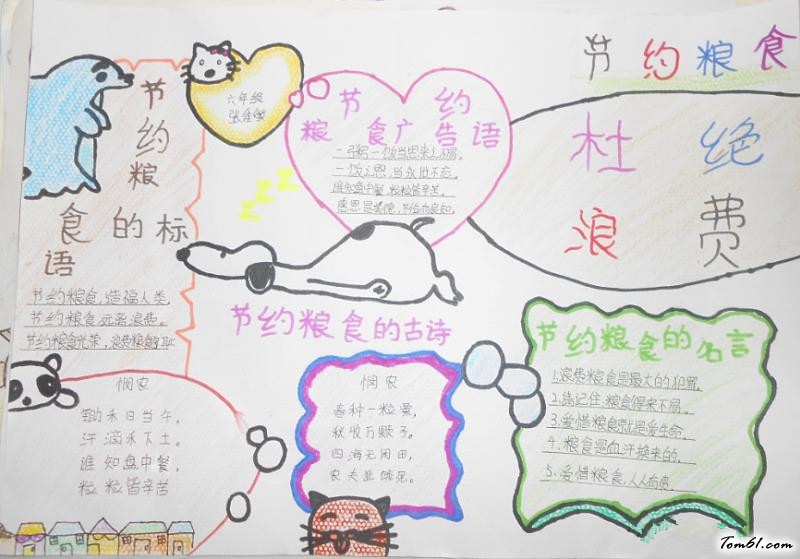 节约粮食
杜绝
浪费
节约粮
食的标
语
节约粮食,造福人类,
节约粮食,远离浪费。
节约粮食光荣,浪费粮食
六年级
节约
粮食广告语
一粥一饭当思来之不易。
一饭之恩,当永世不忘。
谁知盘中餐,粒粒皆辛苦。
感恩是美德,节俭
节约粮食的古诗
悯农
锄禾日当午,
汗滴禾下土。
谁知盘中餐,
粒粒皆辛苦
悯农
春种一粒粟,
秋收万颗子。
四海无闲田,
农夫犹饿死。
节约粮食的名言
1.浪费粮食是最大的犯罪。
2.请记住,粮食得来不易。
3.爱惜粮食就是爱生命。
4.粮食是血汗换来的。
5.爱惜粮食,人人有责。
Tom61.com